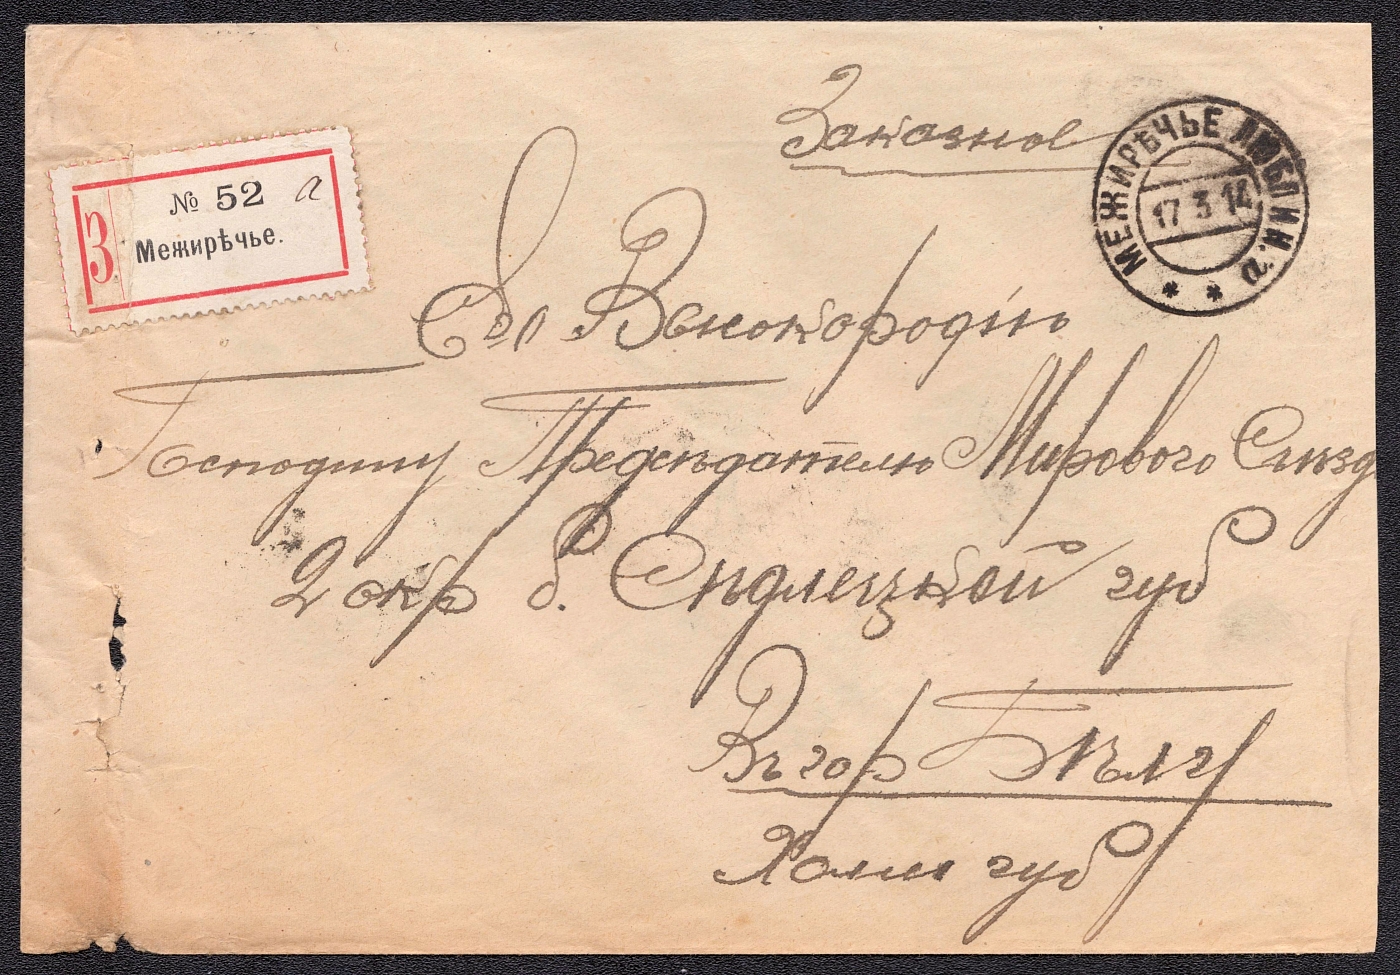 Заказное
МЕЖИРѢЧЬЕ ЛЮБЛИН. Г.
17 3 14
№ 52 а
З Межирѣчье.
Его Высокородію
Господину Предсѣдателю Мирового Съѣзда
2 окр б. Сѣдлецкой губ
Въ гор Бѣлу
Холм губ